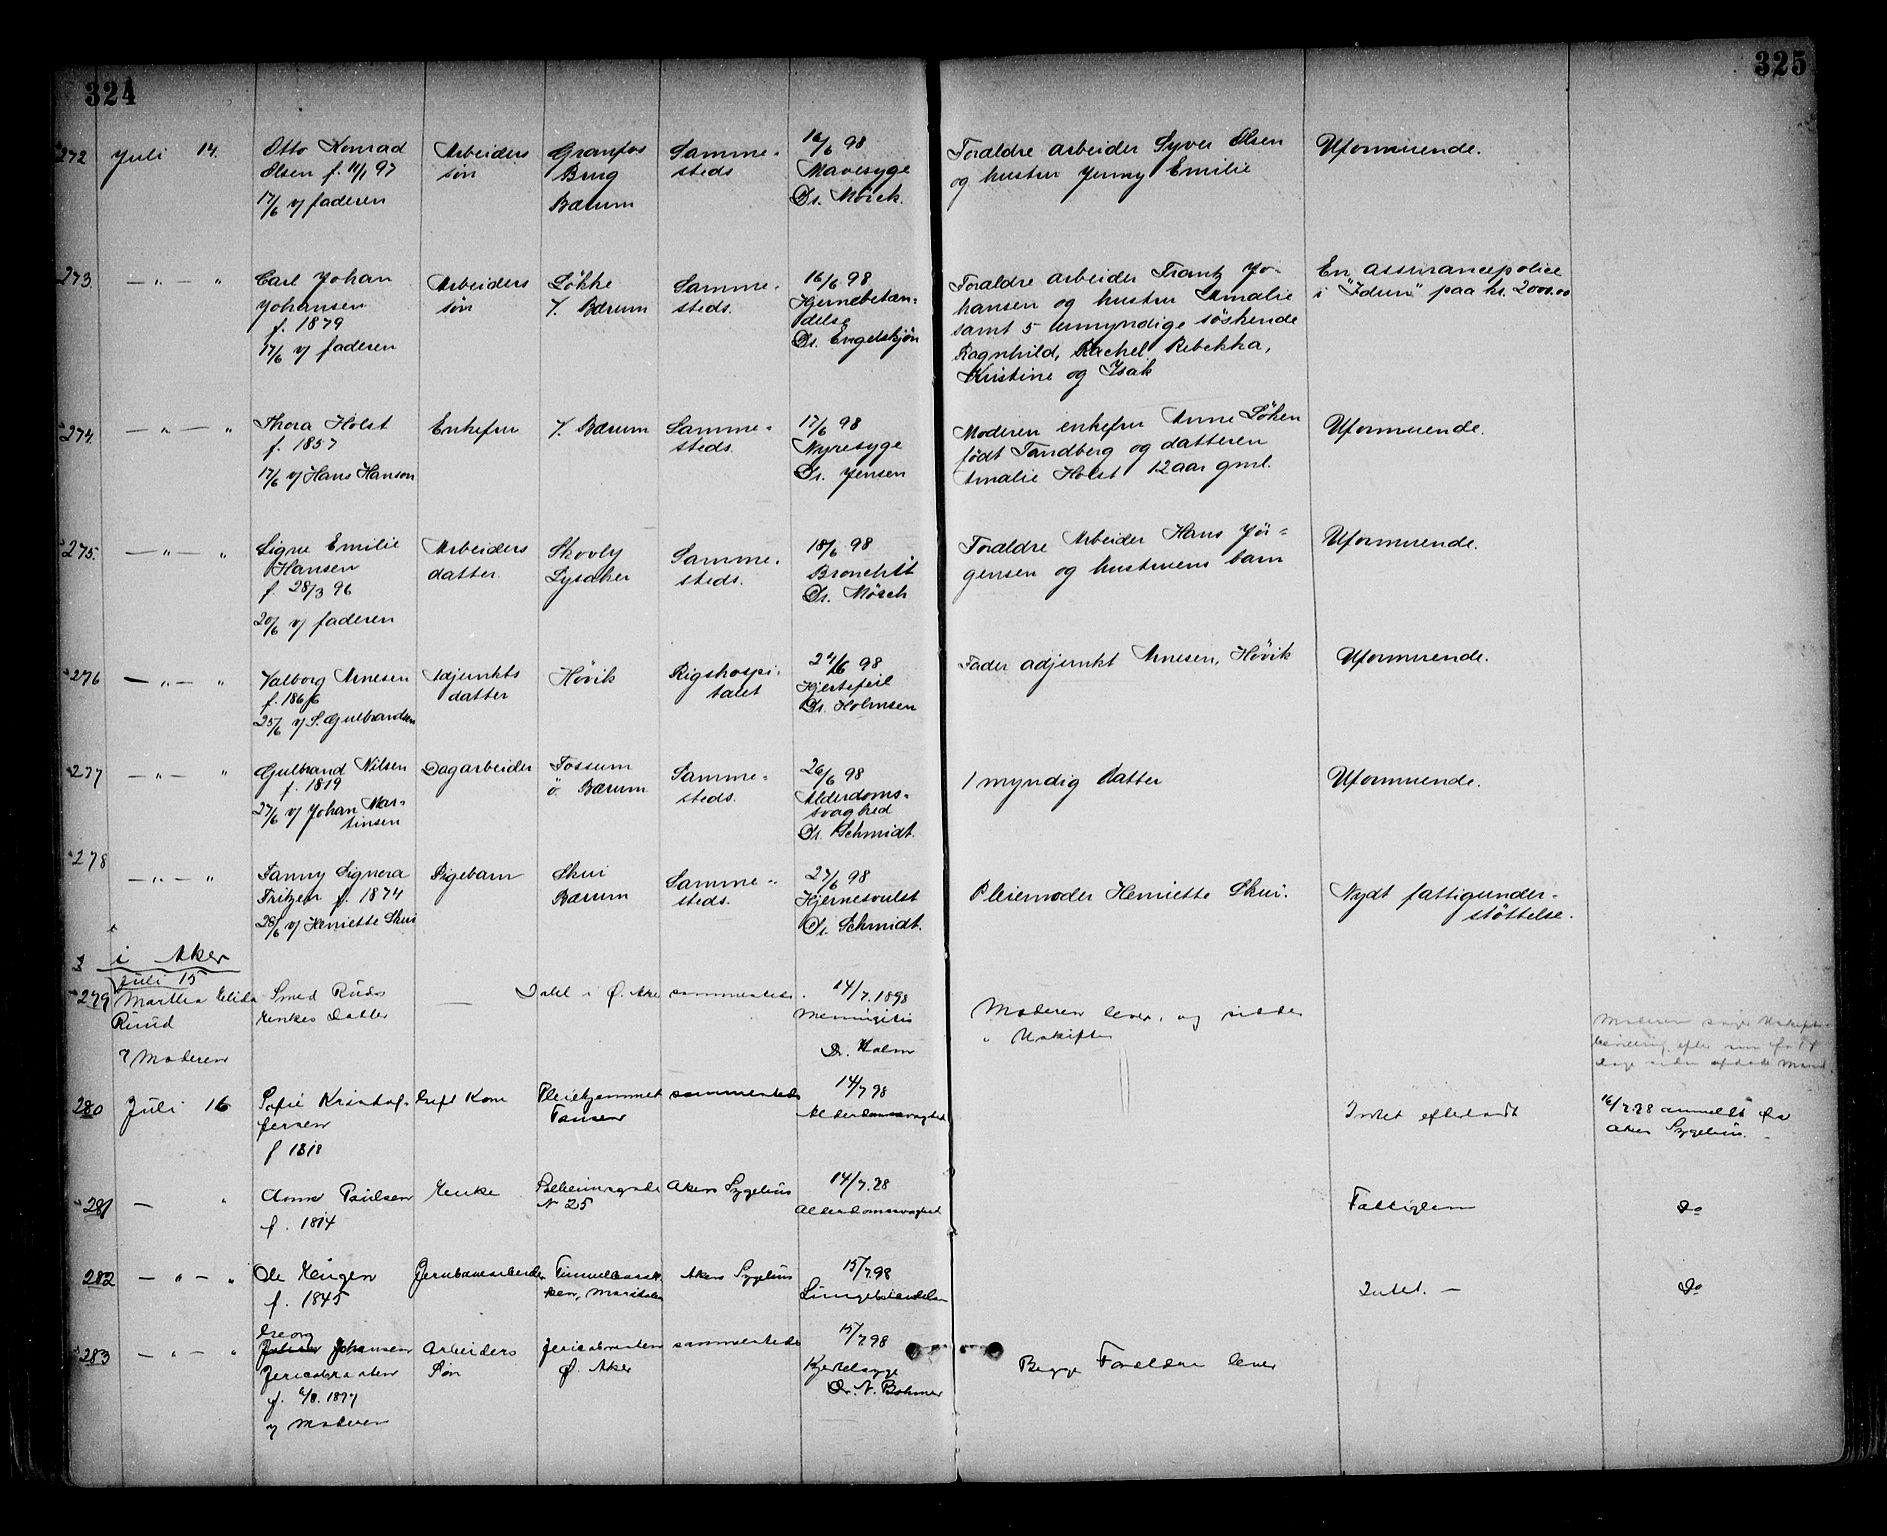 324
325
272 Juli 14. Otto Konrad Arbeiders Granfos Samme- 16/6 98 Foraldre arbeider Syver Olsen Uformuende.
Olsen f. 11/1 97 søn Brug steds Mavesyge og hustru Jenny Emilie
17/6 v/ faderen Bærum Dr. Mørch.
273 — " — " Carl Johan Arbeiders Løkke Samme- 16/6 98 Foraldre arbeider Frantz Jo- En assurancepolice
Johansen søn V. Bærum steds. Hjernebetæn- hansen og hustru Amalie i "Idun" paa kr. 2000.00
f. 1879 delse samt 5 umyndige søskende
17/6 v/ faderen Dr. Engelskjøn Ragnhild, Rachel, Rebekka,
Kristine og Isak
274. — " — " Thora Holst Enkefru V. Bærum Samme- 17/6 98 Moderen enkefru Anne Løken Uformuende.
f. 1857 steds. Nyresyge født Tandberg og datteren
17/6 v/ Hans Hanson Dr. Jensen Amalie Holst 12 aar gml.
275. — " — " Signe Emilie Arbeiders Skovly Samme- 18/6 98 Foraldre Arbeider Hans Jør- Uformuende.
Hansen datter. Lysaker steds. Bronchit gensen og hustruens barn
f. 28/3 96 Dr. Mørch
20/6 v/ faderen
276 — " — " Valborg Arnesen Adjunkts Høvik Rigshospi- 24/6 98 Fader adjunkt Arnesen, Høvik Uformuende.
f. 1866 datter talet Hjertefeil
25/6 v/ S. Gulbrandsen Dr. Holmsen
277 — " — " Gulbrand Nilsen Dagarbeider Fossum Samme- 26/6 98 1 myndig datter Uformuende.
f. 1819 ø. Bærum steds. Alderdoms-
27/6 v/ Johan Mar- svaghed
tinsen Dr. Schmidt.
278
— " — " Fanny Signora Pigebarn Skui Samme- 27/6 98 Pleiemoder Henriette Skui. Nydt fattigunder-
Fritzen f. 1874 Bærum steds. Hjernesvulst støttelse.
28/6 v/ Henriette Skui Dr. Schmidt.
i Aker
Juli 15
279 Martha Elida Smed Ruds — Dahl i Ø. Aker sammesteds. 14/7. 1898 Moderen lever, og sidder
Ruud Enkes Datter Meningitis i Uskifte
v/ Moderen Dr. Holm
280 Juli 16 Sofie Kristof- Gift Kone Pleiehjemmet sammesteds 14/7 98 Intet efterladt 16/7. 98 anmeldt fra
fersen Tonsen Alderdomssvaghed Akers Sygehus.
f 1818
281 — " Anna Paulsen Enke N 25 Akers Sygehus 14/7. 98 Fattiglem Do
f. 1814 Alderdomssvaghed
282 — " — " Ole Jernbanearbeider Akers Sygehus 15/7 98 Intet. — Do
f. 1845 Lungebetændelse
Georg
283 — " — " Johansen Arbeiders Jericobraaten sammesteds 15/7 98 Begge Forældre lever
Jericobraaten Søn Ø. Aker
f. 6/8. 1897 Dr. N. Bohmer
v/ Moderen